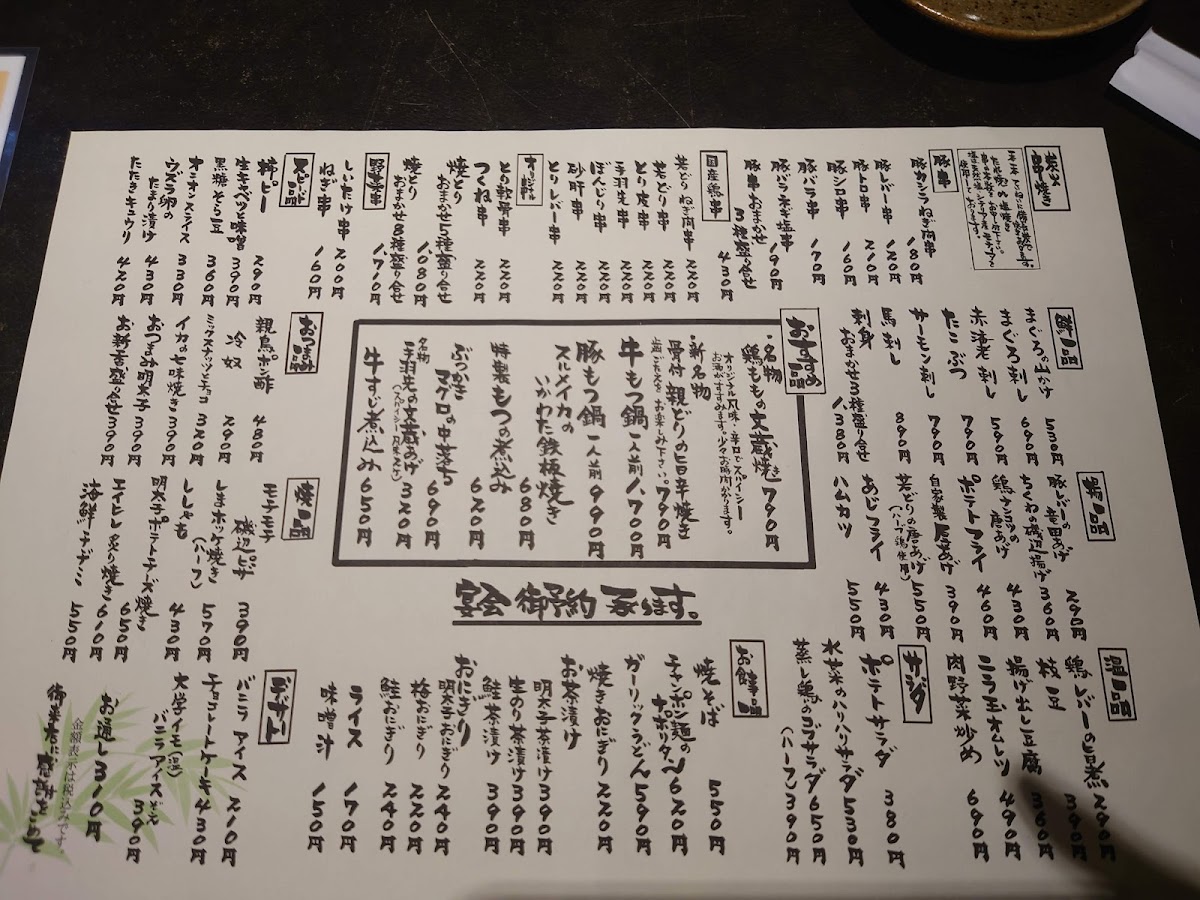 炭火串焼き
豚串
豚カシラねぎ肉串 180円
豚レバー串 120円
豚トロ串 210円
豚シロ串 160円
豚バラ串 170円
豚バラねぎ塩串 190円
豚串おまかせ
3種盛り合せ 430円
国産鶏串
若どりねぎ肉串 220円
若どり串 220円
とり皮串 220円
手羽先串 220円
ぼんじり串 220円
砂肝串 220円
とりレバー串 220円
とり軟骨串 220円
つくね串 220円
焼とり
おまかせ5種盛り合せ 1080円
焼とり
おまかせ8種盛り合せ 1710円
野菜串
しいたけ串 200円
ねぎ串 160円
スピード品
柿ピー 290円
生キャベツと味噌 390円
黒糖そら豆 360円
オニオンスライス 330円
ウズラ卵の
たまり漬け 430円
たたきキュウリ 420円
鮮品
まぐろの山かけ 530円
まぐろ刺し 690円
赤海老刺し 590円
たこぶつ 790円
サーモン刺し 790円
馬刺し 890円
刺身
おまかせ3種盛り合せ 1380円
おすすめ品
・名物
鶏ももの文蔵焼き 790円
オリジナル風味・辛口でスパイシー
お酒がすすみます。少々お時間かかります。
・新名物
骨付親どりの旨辛焼き 790円
牛もつ鍋一人前 1700円
豚もつ鍋一人前 990円
スルメイカの
いかわた鉄板焼き 680円
特製もつの煮込み 620円
ぶつ切り
マグロの中落ち 690円
名物
手羽先の文蔵あげ 320円
牛すじ煮込み 650円
おつまみ品
親鳥ポン酢 480円
冷奴 290円
ミックスナッツとチョコ 320円
イカの七味焼き 390円
おつまみ明太子 390円
お新香盛り合せ 390円
揚品
豚レバーの竜田あげ 290円
ちくわの磯辺揚げ 360円
鶏ナンコツの
唐あげ 430円
ポテトフライ 460円
自家製厚あげ 390円
若どりの唐あげ 550円
(ハーブ鶏使用)
あじフライ 430円
ハムカツ 550円
宴会御予約承ります。
焼品
モチモチ
磯辺ピザ 390円
しまホッケ焼き 570円
(ハーフ)
ししゃも 430円
明太子ポテトチーズ焼き 650円
エイヒレ炙り焼き 610円
海鮮チヂミ 550円
鶏レバーの旨煮 290円
枝豆
揚げ出し豆腐
ニラ玉オムレツ 490円
肉野菜炒め 690円
サラダ
ポテトサラダ 380円
水菜のハリハリサラダ 530円
蒸し鶏のゴマサラダ 650円
(ハーフ)390円
お食事品
焼そば 550円
チャンポン麺の
ナポリタン 620円
ガーリックうどん 590円
焼きおにぎり 220円
お茶漬け
明太子茶漬け 390円
生のり茶漬け 390円
鮭茶漬け 390円
おにぎり
明太子おにぎり 240円
梅おにぎり 220円
鮭おにぎり 240円
ライス 170円
味噌汁 150円
デザート
バニラアイス 210円
チョコレートケーキ 430円
大学イモ(温)
バニラアイス添え 390円
お通し 310円
金額表示は税込みです。